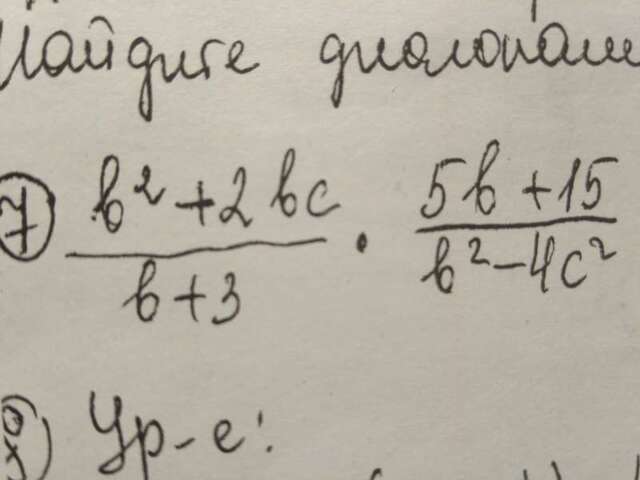 Найдите диагонали
7) (b² + 2bc)/(b + 3) · (5b + 15)/(b² - 4c²)
8) Ур-е: